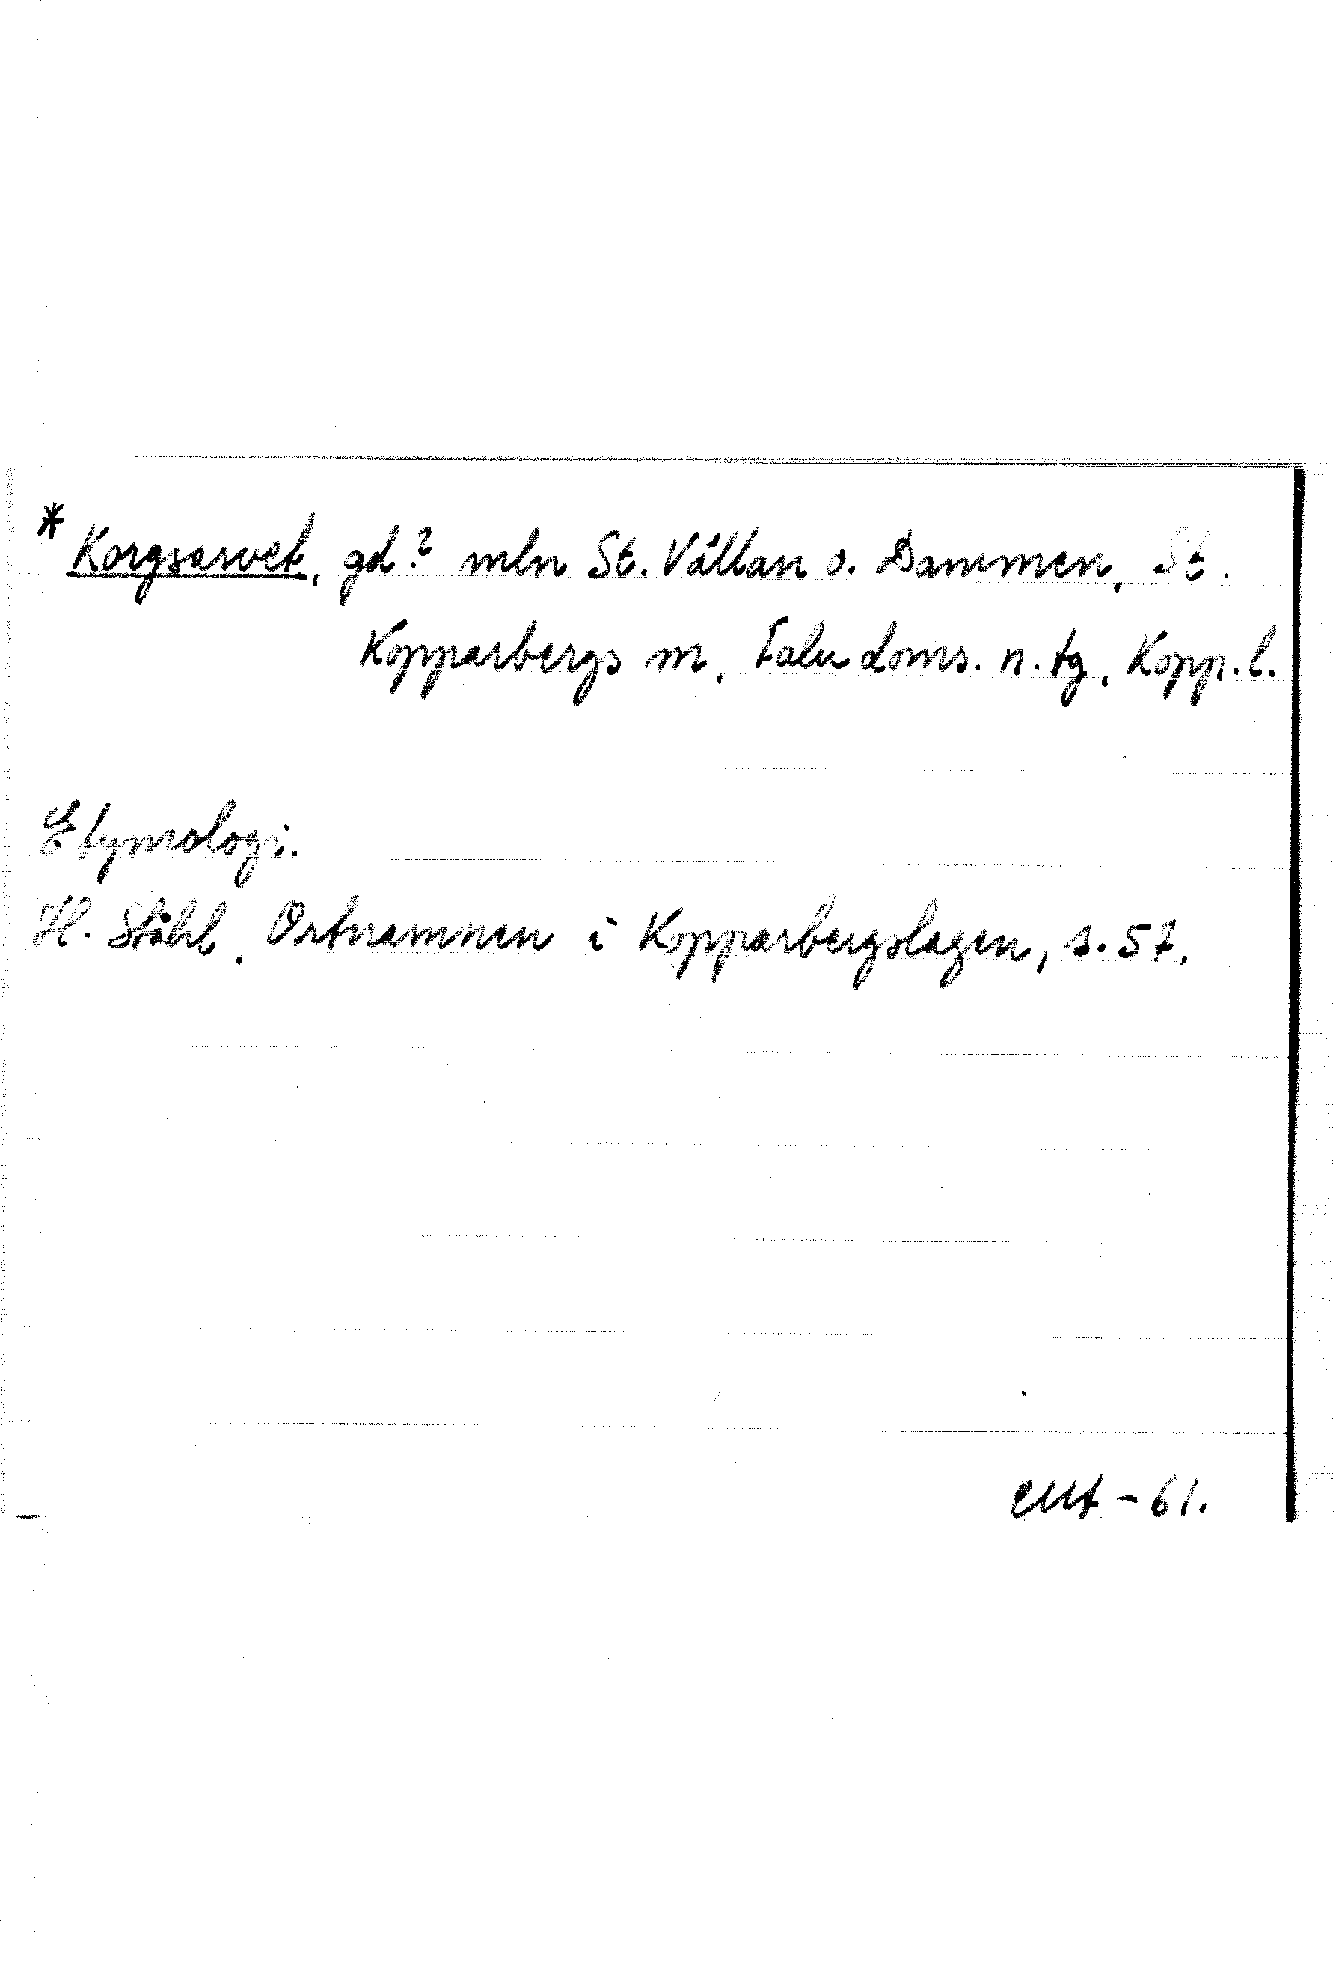 * Korgsarvet, gd? mln St. Vällan o. Dammen, St.
Kopparbergs sn, Falu doms. n. tg, Kopp. l.
Etymologi.
H. Ståhl, Ortnamnen i Kopparbergslagen, s. 57.
- 61.